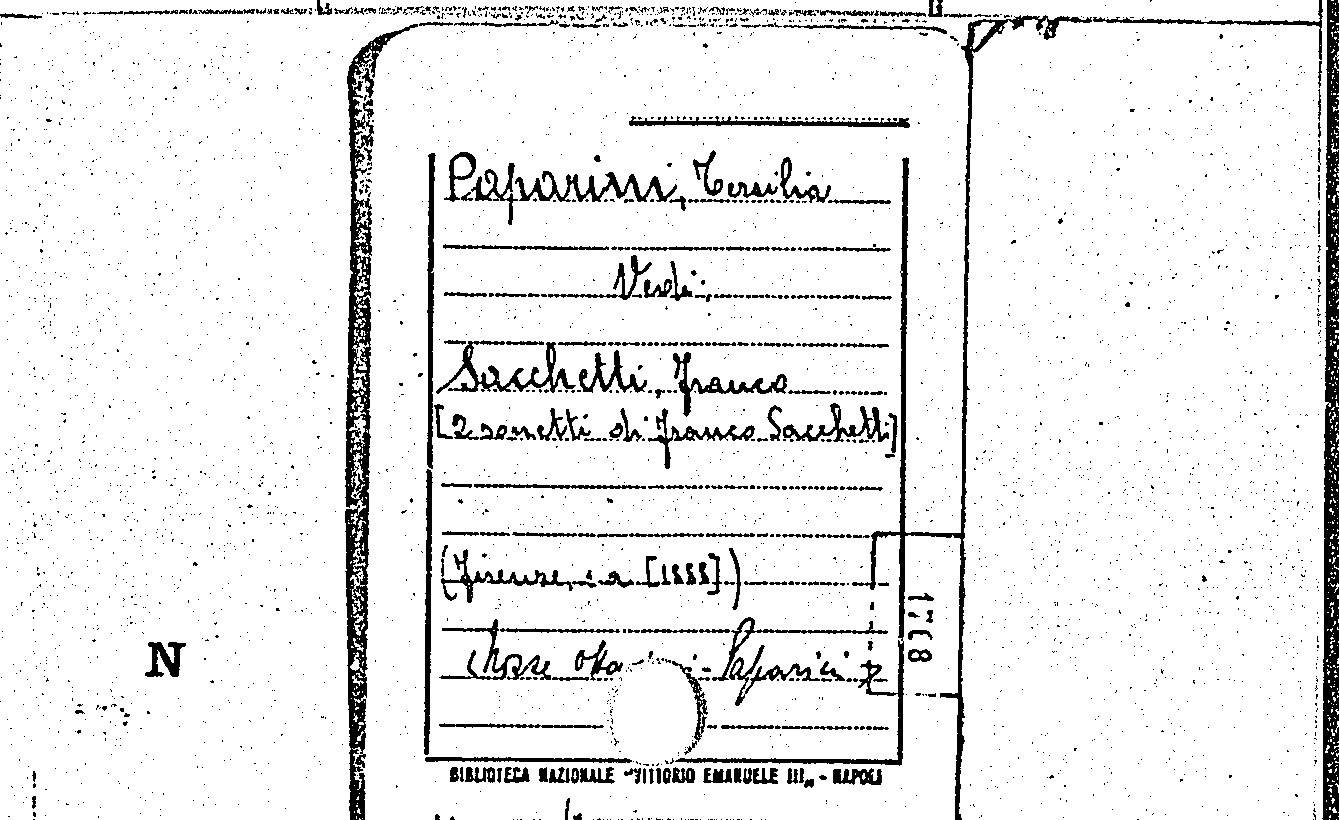 Paparini, Tersilia
Vedi:
Sacchetti, Franco
[2 sonetti di Franco Sacchetti]
(Firenze, s.a. [1888])
Nozze
- Paparini
N
BIBLIOTECA NAZIONALE "VITTORIO EMANUELE III„ - NAPOLI